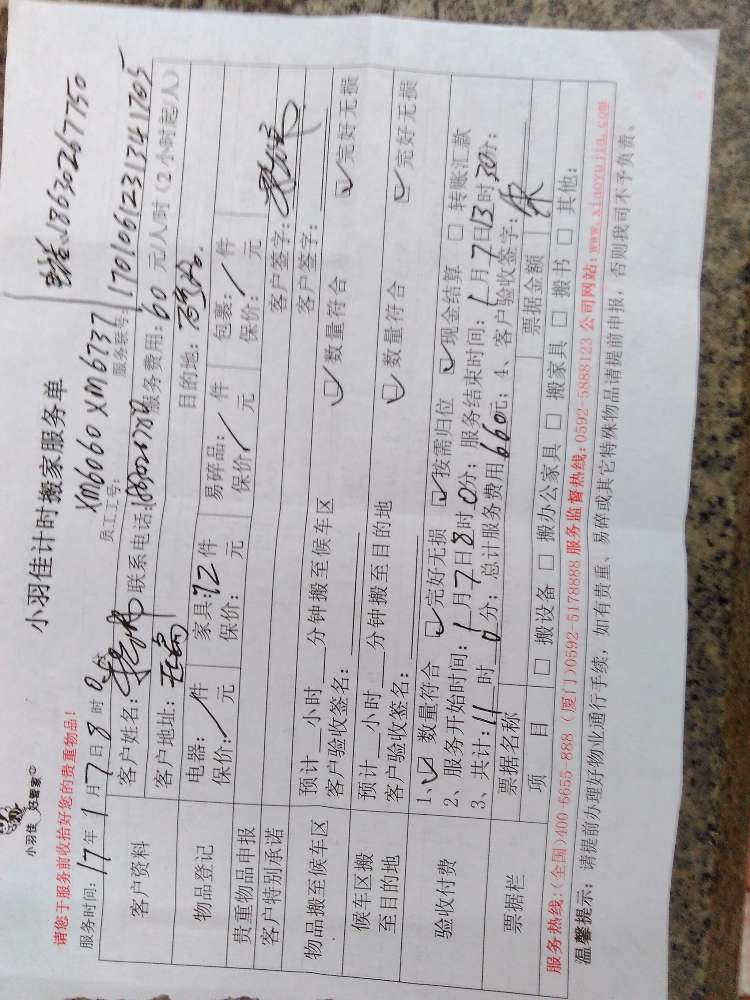 小羽佳 好管家
小羽佳计时搬家服务单
电话:18630267750
请您于服务前收拾好您的贵重物品!
员工工号: XM6060 XM6737
服务时间: 17年1月7日8时0分
服务联号: 1701061231341705
客户资料
客户姓名: 联系电话:
服务费用: 60 元/人/时(2小时起/人)
客户地址:
目的地:
物品登记
电器: / 件 家具: 12 件 易碎品: / 件 包裹: / 件
保价: 元 保价: 元 保价: / 元 保价: / 元
贵重物品申报
客户特别承诺
客户签字:
物品搬至候车区
预计__小时__分钟搬至候车区
客户签字:
客户验收签名:
☑ 数量符合 ☑ 完好无损
候车区搬至目的地
预计__小时__分钟搬至目的地
客户验收签名:
☑ 数量符合 ☑ 完好无损
验收付费
1、☑ 数量符合 ☑ 完好无损 ☑ 按需归位 ☑ 现金结算 □ 转账汇款
2、服务开始时间: 1月7日8时0分; 服务结束时间: 1月7日13时30分;
3、共计: 11 时 0 分; 总计服务费用 660元; 4、客户验收签字:
票据栏
票据名称 票据金额
项 目 □ 搬设备 □ 搬办公家具 □ 搬家具 □ 搬书 □ 其他:
服务热线:(全国)400-6655-888 (厦门)0592-5178888 服务监督热线: 0592-5888123 公司网站: www.xiaoyujia.com
温馨提示: 请提前办理好物业通行手续, 如有贵重、易碎或其它特殊物品请提前申报, 否则我司不予负责。